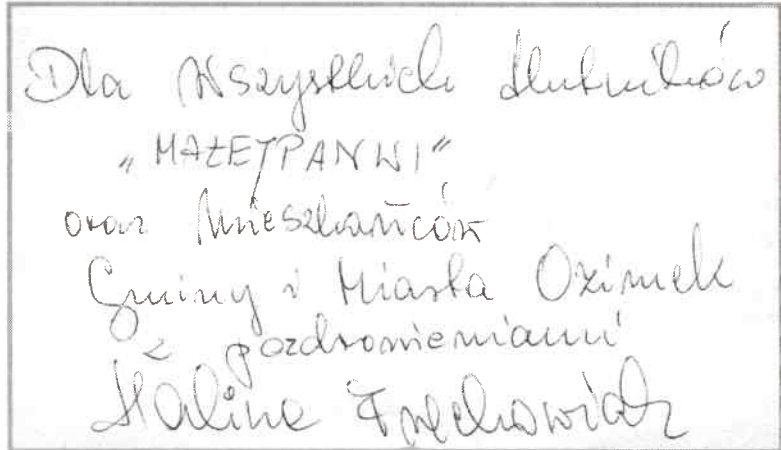 Dla Wszystkich Hutników
„MAŁEJPANWI"
oraz Mieszkańców
Gminy i Miasta Ozimek
z pozdrowieniami
Halina Frąckowiak